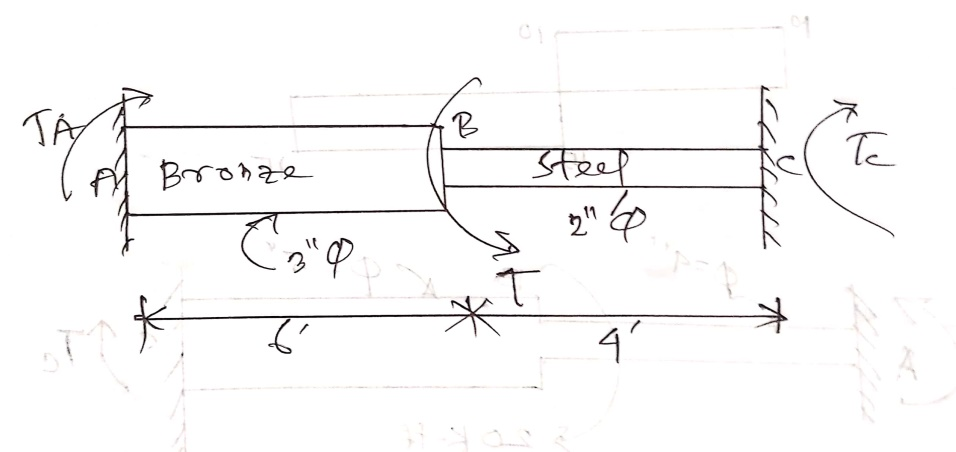 TA
A
Bronze
B
Steel
C
Tc
3" φ
2" φ
T
6'
4'